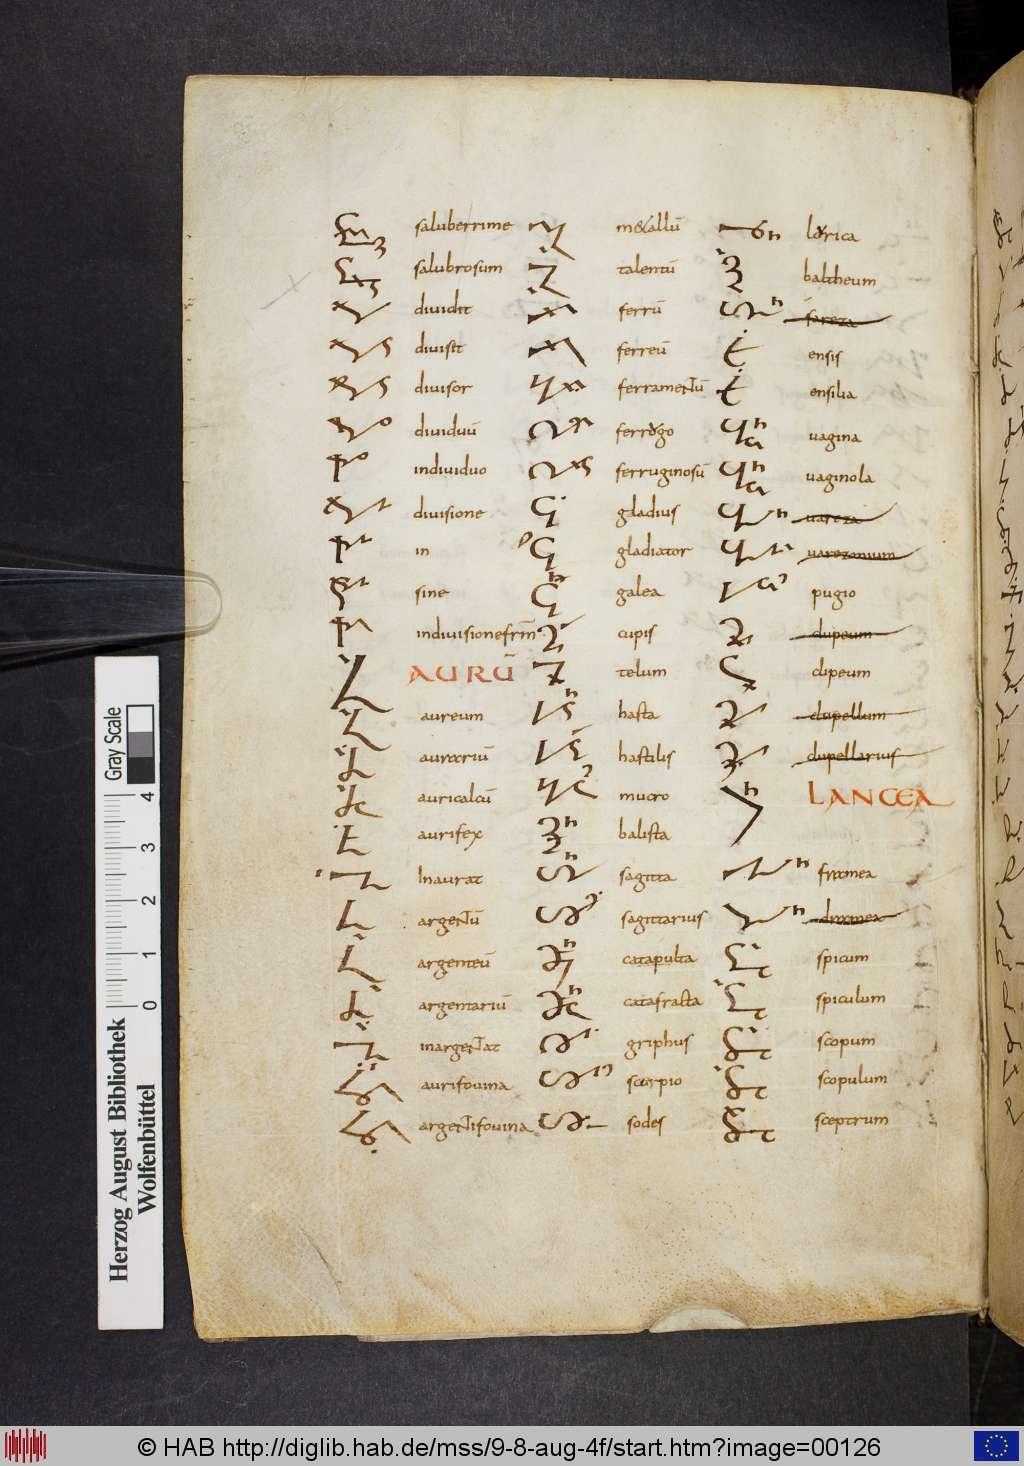 saluberrime
salubrosum
diuidit
diuisit
diuisor
diuiduū
indiuiduo
diuisione
in
sine
indiuisione
AURŪ
aureum
aurariū
auricalcū
aurifex
Inaurat
argentū
argenteū
argentariū
inargentat
aurifouina
argentifouina
metallū
talentū
ferrū
ferreū
ferramentū
ferrugo
ferruginosū
gladius
gladiator
galea
cupis
telum
hasta
hastilis
mucro
balista
sagitta
sagittarius
catapulta
catafracta
griphus
scorpio
sodes
lorica
baltheum
ensis
ensilia
uagina
uaginola
uareza
uarezonium
pugio
clupeum
clipeum
clupellum
clupellarius
LANCEA
framea
spicum
spiculum
scopum
scopulum
sceptrum
Gray Scale
4
3
2
1
0
Herzog August Bibliothek
Wolfenbüttel
© HAB http://diglib.hab.de/mss/9-8-aug-4f/start.htm?image=00126